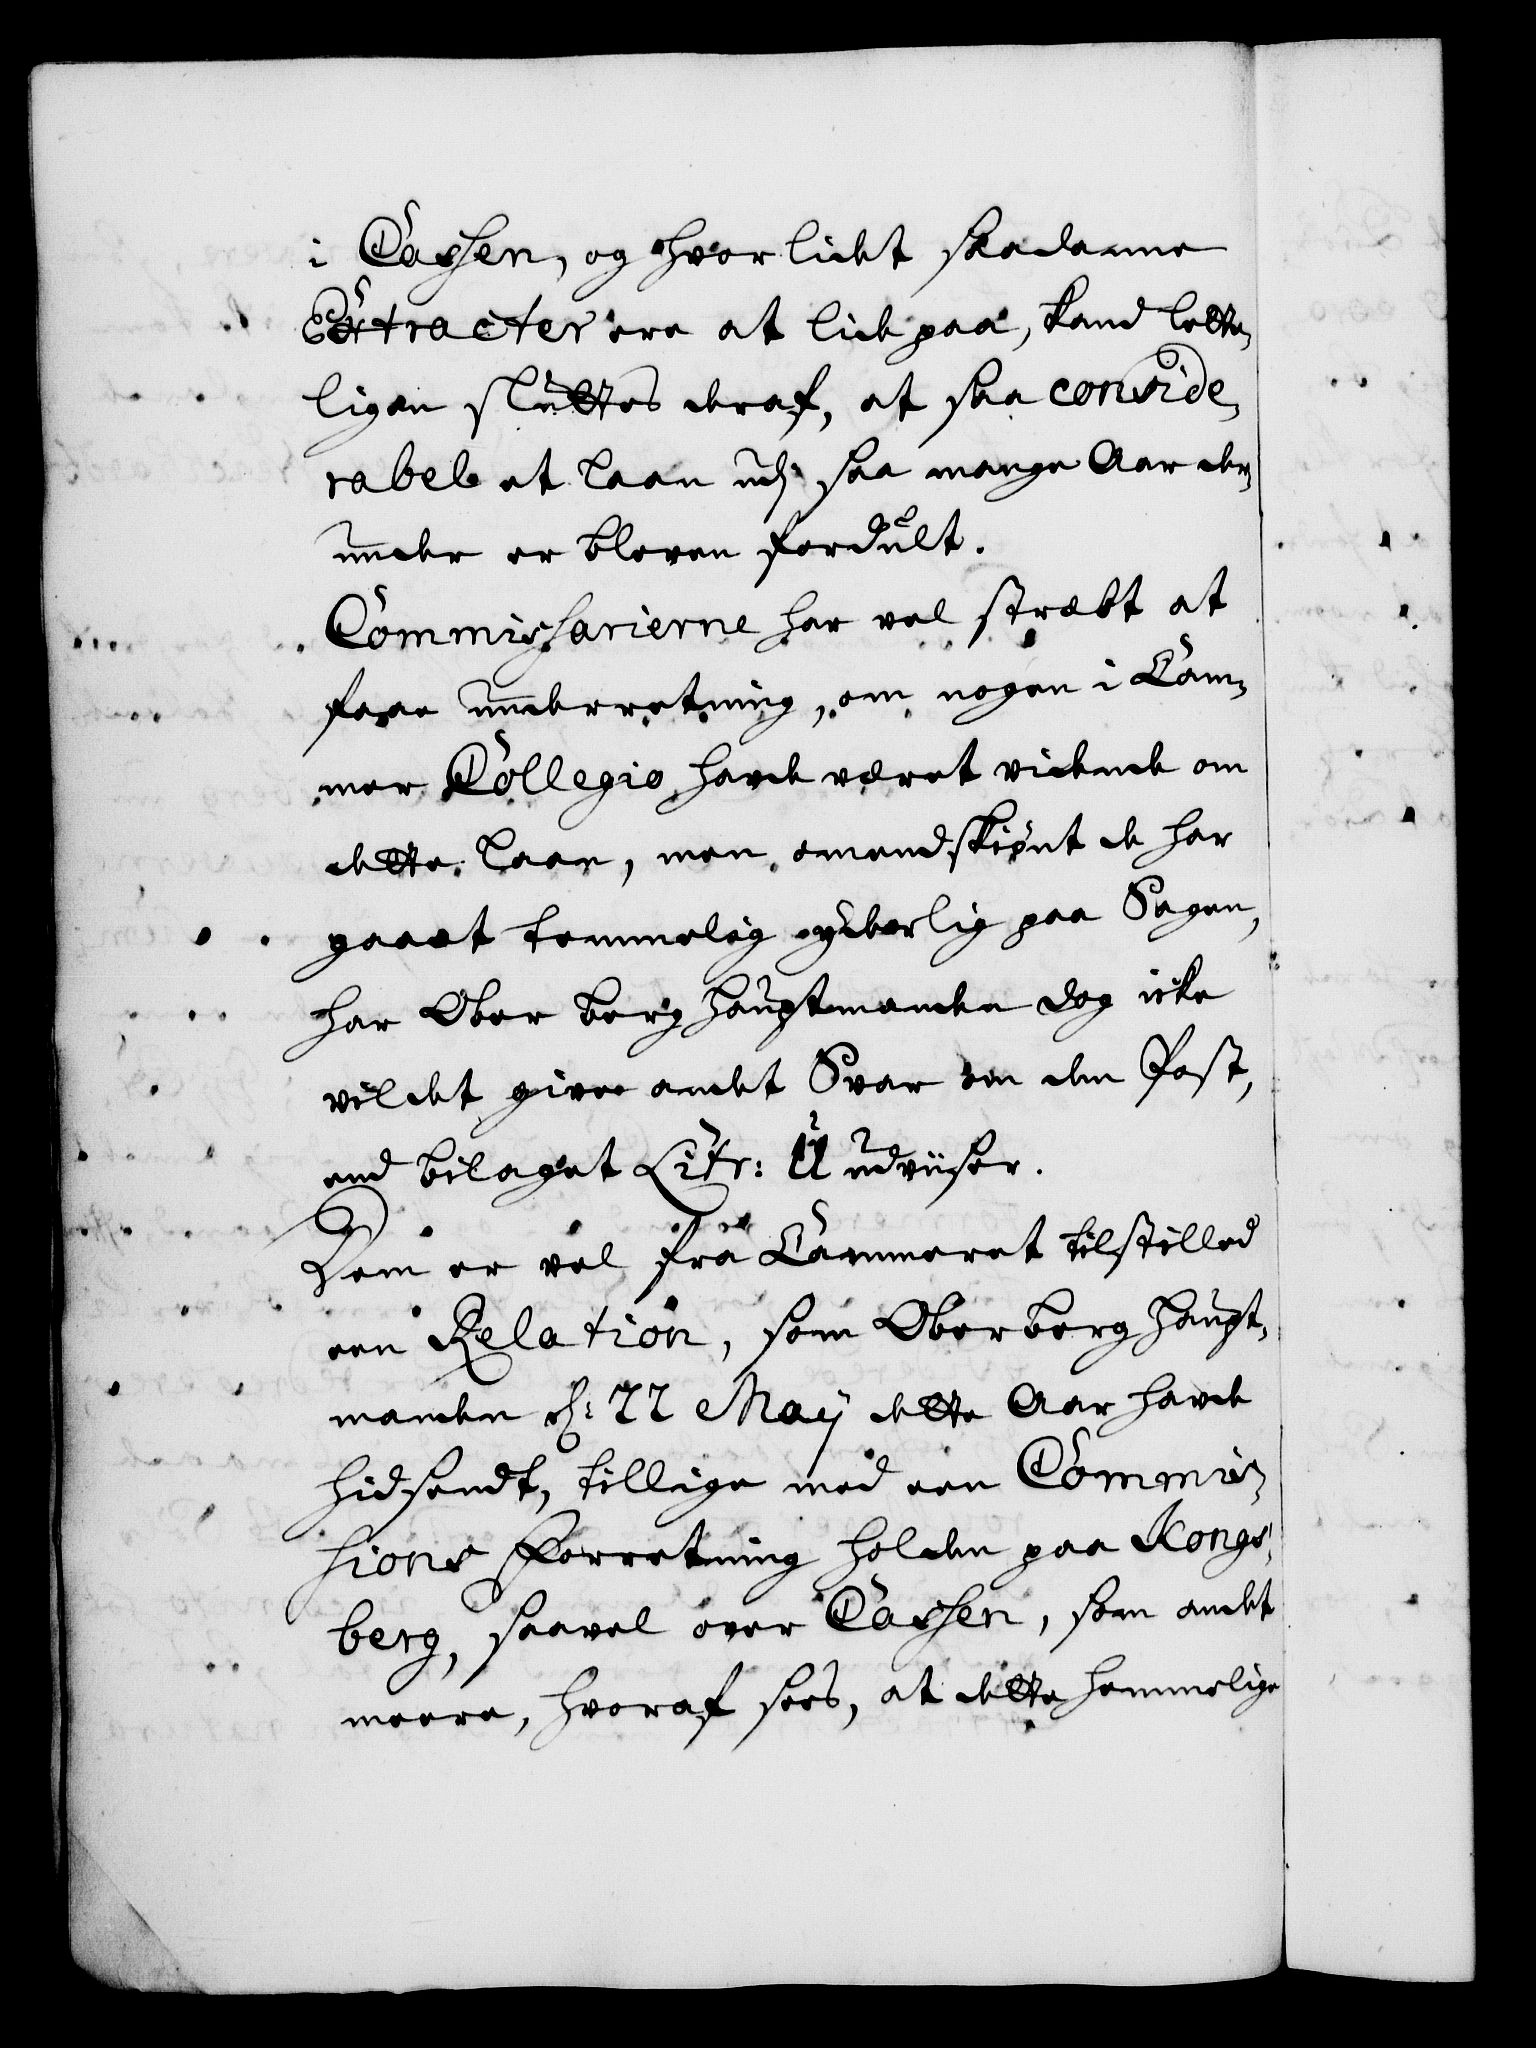 i Cassen, og hvor lidet saadanne
Extracter ere at lide paa, kand lette,
ligen sluttes deraf, at saa conside,
rabelt et laan udj saa mange Aar der,
under er bleven fordult.
Commissarierne har vel stræbt at
faae underretning, om nogen i Cam,
mer Collegio hafde været vidende om
dette laan, men omendskiønt de har
gaaet temmelig yderlig paa Sagen,
har Ober berg hauptmanden dog icke
vildet give andet Svar om den Post,
end bilaget Litr: U udviiser.
Dem er vel fra Cammeret tilstilled
een Relation, som Oberberg haupt,
manden d: 22 Maij dette Aar hafde
hidsendt, tillige med een Commis,
sions Forretning holden paa Kongs,
berg, saavel over Cassen, som andet
meere, hvoraf sees, at dette hemmelige